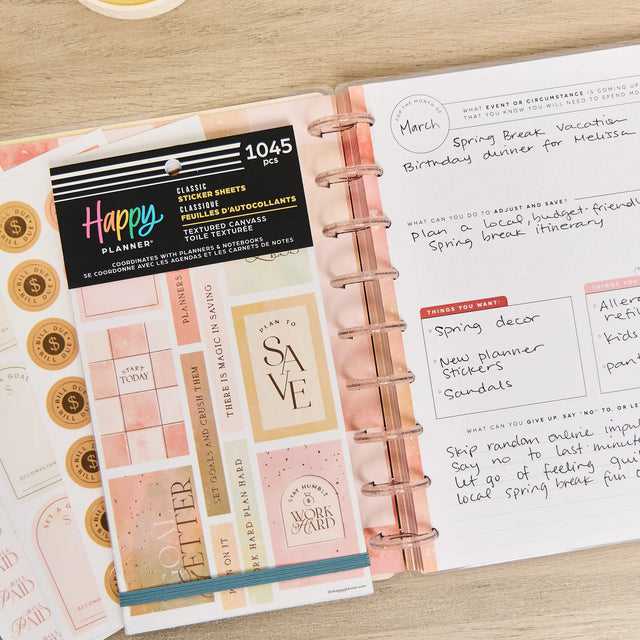 1045
pcs
CLASSIC
STICKER SHEETS
CLASSIQUE
FEUILLES D'AUTOCOLLANTS
Happy
PLANNER®
TEXTURED CANVASS
TOILE TEXTURÉE
COORDINATES WITH PLANNERS & NOTEBOOKS
SE COORDONNE AVEC LES AGENDAS ET LES CARNETS DE NOTES
PLANNERS
THERE IS MAGIC IN SAVING
START
TODAY
PLAN TO
SAVE
SET GOALS AND CRUSH THEM
WORK HARD PLAN HARD
GOAL
GETTER
ON IT
STAY HUMBLE
&
WORK
HARD
thehappyplanner.com
BILL DUE
$
BILL DUE
BILL DUE
$
BILL DUE
BILL DUE
$
BILL DUE
BILL DUE
$
BILL DUE
BILL DUE
$
A GOAL
ACCOMPLISH
SET A
ACCOM
BILL
PAID
BILL
PAID
FOR THE MONTH OF
March
WHAT EVENT OR CIRCUMSTANCE IS COMING UP
THAT YOU KNOW YOU WILL NEED TO SPEND MO
Spring Break Vacation
Birthday dinner for Melissa
WHAT CAN YOU DO TO ADJUST AND SAVE?
Plan a local, budget-friendly
Spring break itinerary
THINGS YOU WANT:
Spring decor
New planner
stickers
Sandals
THINGS YOU
Aller
refil
Kids
pan
WHAT CAN YOU GIVE UP, SAY "NO" TO, OR LE
Skip random online impu
Say no to last minute
let go of feeling gui
local spring break fun